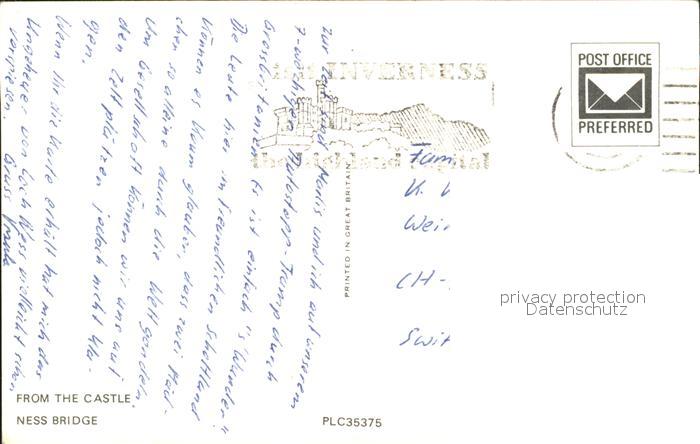 Zur Zeit sind Mollis und ich auf unserem
7-wöchigen Autostopp-Tramp durch
Grossbritannien. Es ist einfach "s'Wunder"!
Die Leute hier im freundlichen Schottland
können es kaum glauben, dass zwei Mäd-
chen so alleine durch die Welt gondeln.
Um Gesellschaft können wir uns auf
den Zeltplätzen jedoch nicht kla-
gen.
Wenn Ihr die Karte erhält hat mich das
Ungeheuer von Loch Ness vielleicht schon
vergessen.
Gruss
visit INVERNESS
the Highland Capital
POST OFFICE
PREFERRED
PRINTED IN GREAT BRITAIN
Fam
K. 
Wei
CH-
Swit
privacy protection
Datenschutz
FROM THE CASTLE
NESS BRIDGE
PLC35375